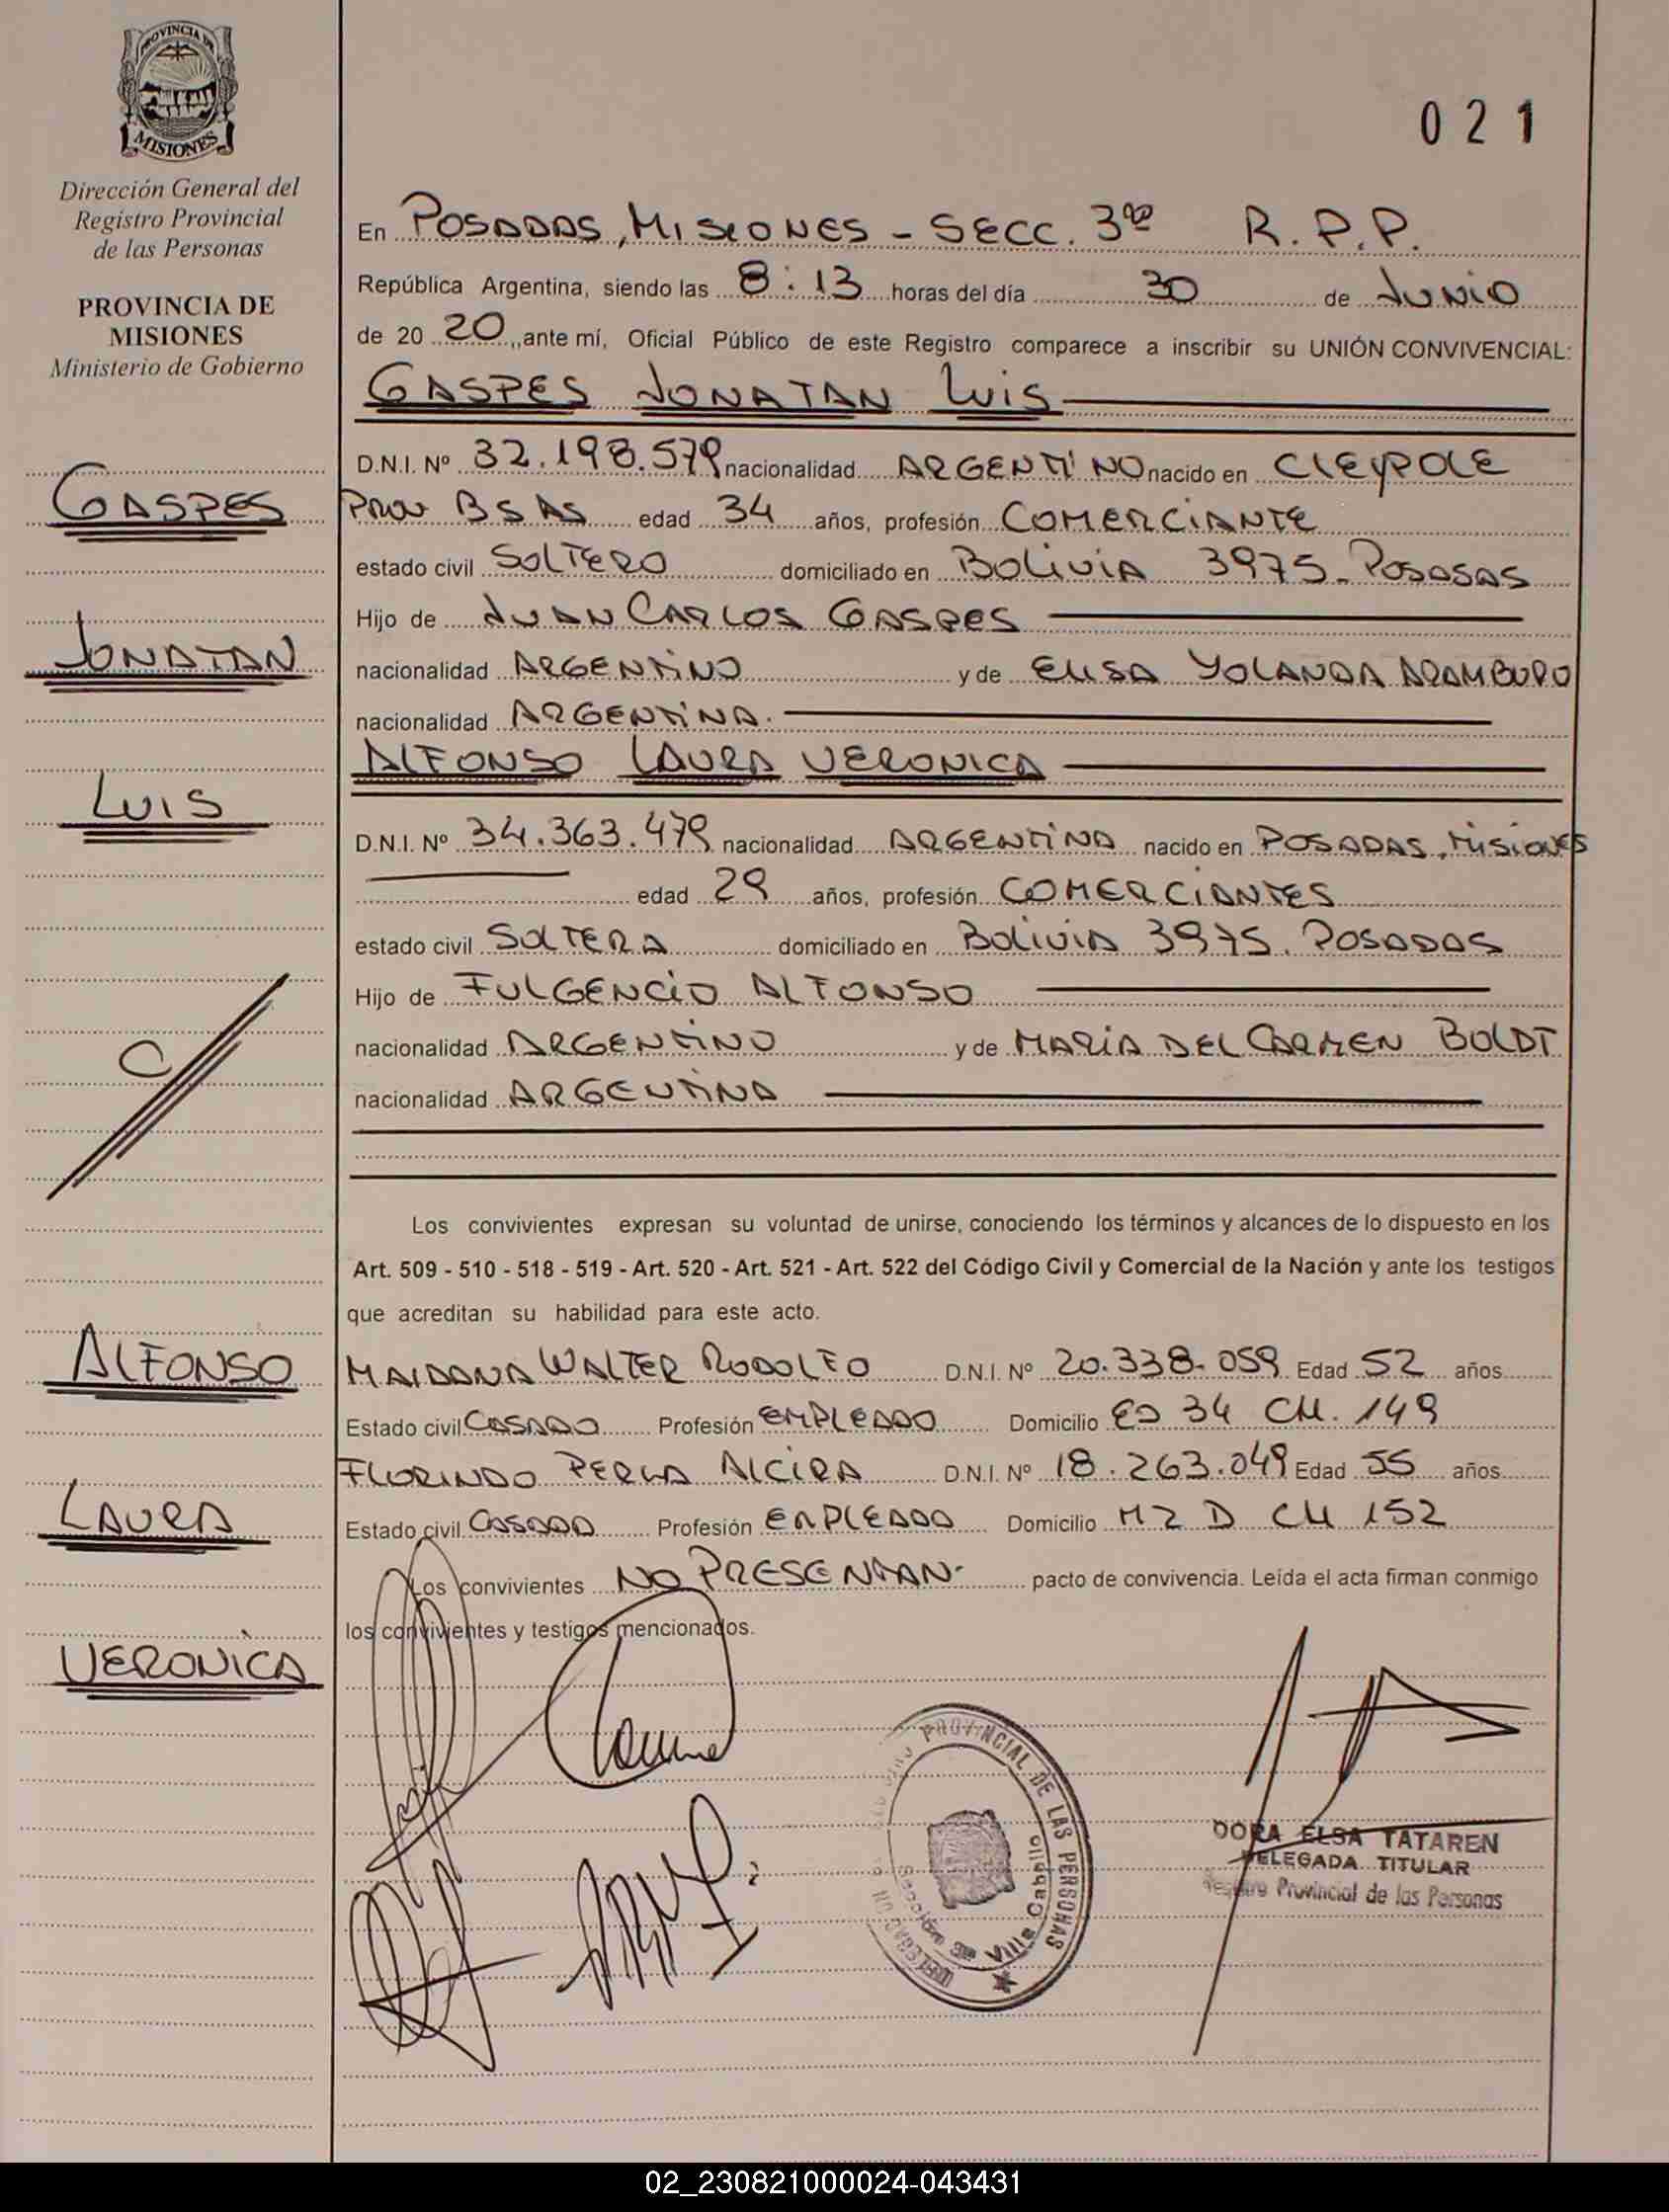 PROVINCIA DE
MISIONES
Dirección General del
Registro Provincial
de las Personas
PROVINCIA DE
MISIONES
Ministerio de Gobierno
GASPES
JONATAN
LUIS
C/
ALFONSO
LAURA
VERONICA
021
En POSADAS, MISIONES - SECC. 3ra R.P.P.
República Argentina, siendo las 8:13 horas del día 30 de JUNIO
de 20 20, ante mí, Oficial Público de este Registro comparece a inscribir su UNIÓN CONVIVENCIAL:
GASPES JONATAN LUIS
D.N.I. Nº 32.198.579 nacionalidad ARGENTINO nacido en CLEYPOLE
Prov BS AS edad 34 años, profesión COMERCIANTE
estado civil SOLTERO domiciliado en BOLIVIA 3975. POSADAS
Hijo de JUAN CARLOS GASPES
nacionalidad ARGENTINO y de ELISA YOLANDA ARAMBURO
nacionalidad ARGENTINA.
ALFONSO LAURA VERONICA
D.N.I. Nº 34.363.479 nacionalidad ARGENTINA nacido en POSADAS, MISIONES
edad 29 años, profesión COMERCIANTES
estado civil SOLTERA domiciliado en BOLIVIA 3975. POSADAS
Hijo de FULGENCIO ALFONSO
nacionalidad ARGENTINO y de MARIA DEL CARMEN BOLDT
nacionalidad ARGENTINA
Los convivientes expresan su voluntad de unirse, conociendo los términos y alcances de lo dispuesto en los
Art. 509 - 510 - 518 - 519 - Art. 520 - Art. 521 - Art. 522 del Código Civil y Comercial de la Nación y ante los testigos
que acreditan su habilidad para este acto.
MAIDANA WALTER RODOLFO D.N.I. Nº 20.338.059 Edad 52 años
Estado civil CASADO Profesión EMPLEADO Domicilio ED 34 CH. 149
FLORINDO PERLA ALCIRA D.N.I. Nº 18.263.049 Edad 55 años
Estado civil CASADA Profesión EMPLEADO Domicilio MZ D CH 152
Los convivientes NO PRESENTAN. pacto de convivencia. Leída el acta firman conmigo
los convivientes y testigos mencionados.
PROVINCIAL DE LAS PERSONAS
Villa Cabello
DORA ELSA TATAREN
DELEGADA TITULAR
Registro Provincial de las Personas
02_230821000024-043431